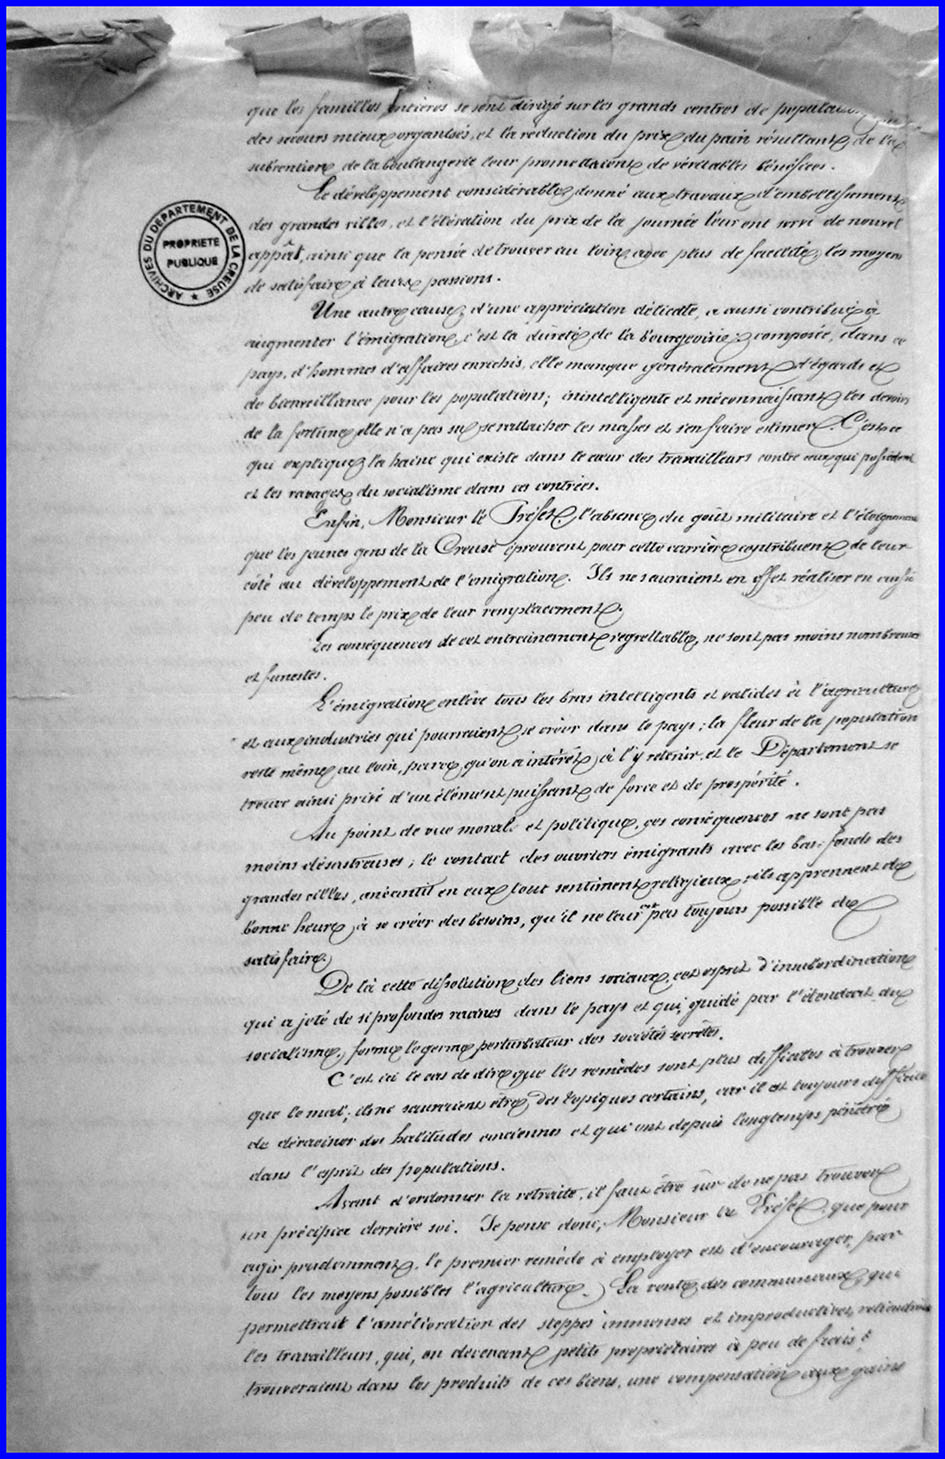 que les familles entières se sont dirigé sur les grands centres de
des secours mieux organisés, et la réduction du prix du pain résultant de la
subvention de la boulangerie leur promettaient de véritables bénéfices.
Le développement considérable donné aux travaux d'embellissement
des grandes villes, et l'élévation du prix de la journée leur ont servi de nouvel
appât, ainsi que la pensée de trouver au loin, avec plus de facilité, les moyens
de satisfaire à leurs passions.
ARCHIVES DU DÉPARTEMENT DE LA CREUSE
PROPRIETE
PUBLIQUE
Une autre cause, d'une appréciation délicate, a aussi contribué à
augmenter l'émigration, c'est la dureté de la bourgeoisie; composée, dans ce
pays, d'hommes d'affaires enrichis, elle manque généralement d'égards et
de bienveillance pour les populations; inintelligente et méconnaissant les devoirs
de la fortune, elle n'a pas su se rattacher les masses et s'en faire estimer. C'est ce
qui explique la haine qui existe dans le cœur des travailleurs contre ceux qui possèdent
et les ravages du socialisme dans ces contrées.
Enfin, Monsieur le Préfet, l'absence du goût militaire et l'éloignement
que les jeunes gens de la Creuse éprouvent pour cette carrière contribuent de leur
côté au développement de l'émigration. Ils ne sauraient en effet réaliser en aussi
peu de temps le prix de leur remplacement.
Les conséquences de cet entrainement regrettable, ne sont pas moins nombreuses
et funestes.
L'émigration enlève tous les bras intelligents et valides à l'agriculture
et aux industries qui pourraient se créer dans le pays; la fleur de la population
reste même au loin, parce qu'on a intérêt à l'y retenir, et le Département se
trouve ainsi privé d'un élément puissant de force et de prospérité.
Au point de vue moral et politique, ces conséquences ne sont pas
moins désastreuses; le contact des ouvriers émigrants avec les bas-fonds des
grandes villes, anéantit en eux tout sentiment religieux; ils apprennent de
bonne heure à se créer des besoins, qu'il ne leur est pas toujours possible de
satisfaire.
De là cette dissolution des liens sociaux, cet esprit d'insubordination
qui a jeté de si profondes racines dans le pays et qui, guidé par l'étendart du
socialisme, forme le germe perturbateur des sociétés secrètes.
C'est ici le cas de dire que les remèdes sont plus difficiles à trouver
que le mal; ils ne sauraient être des topiques certains, car il est toujours difficile
de déraciner des habitudes anciennes et qui ont depuis longtemps pénétré
dans l'esprit des populations.
Avant d'ordonner la retraite, il faut être sûr de ne pas trouver
un précipice derrière soi. Je pense donc, Monsieur le Préfet, que pour
agir prudemment, le premier remède à employer est d'encourager, par
tous les moyens possibles l'agriculture. La vente des communaux, qui
permettrait l'amélioration des steppes immenses et improductives, retiendrait
les travailleurs, qui, en devenant petits propriétaires à peu de frais,
trouveraient dans les produits de ces biens, une compensation aux gains